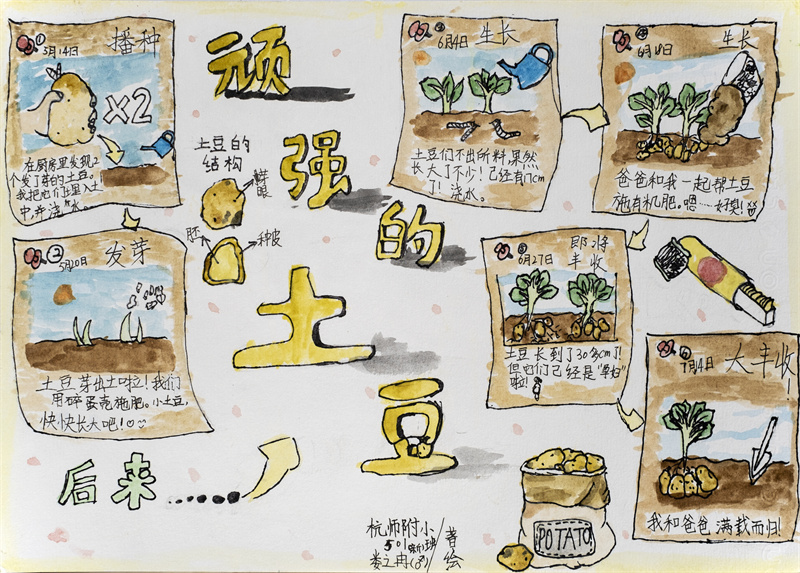 顽
强
的
土
豆
① 5月14日 播种
×2
在厨房里发现2
个发了芽的土豆。
我把它们埋入土
中并浇水。
② 5月20日 发芽
土豆芽出土啦！我们
用碎蛋壳施肥。小土豆，
快快长大吧！
土豆的
结构
芽眼
胚
种皮
③ 6月4日 生长
土豆们不出所料，果然
长大了不少！已经有17cm
了！浇水。
④ 6月18日 生长
爸爸和我一起帮土豆
施有机肥。唔……好臭！
⑤ 6月27日 即将
丰收
土豆长到了30多cm了！
但它们已经是“孕妇”
啦！
⑥ 7月4日 大丰收！
我和爸爸满载而归！
后来……
POTATO
杭师附小
501
娄之冉
著
绘